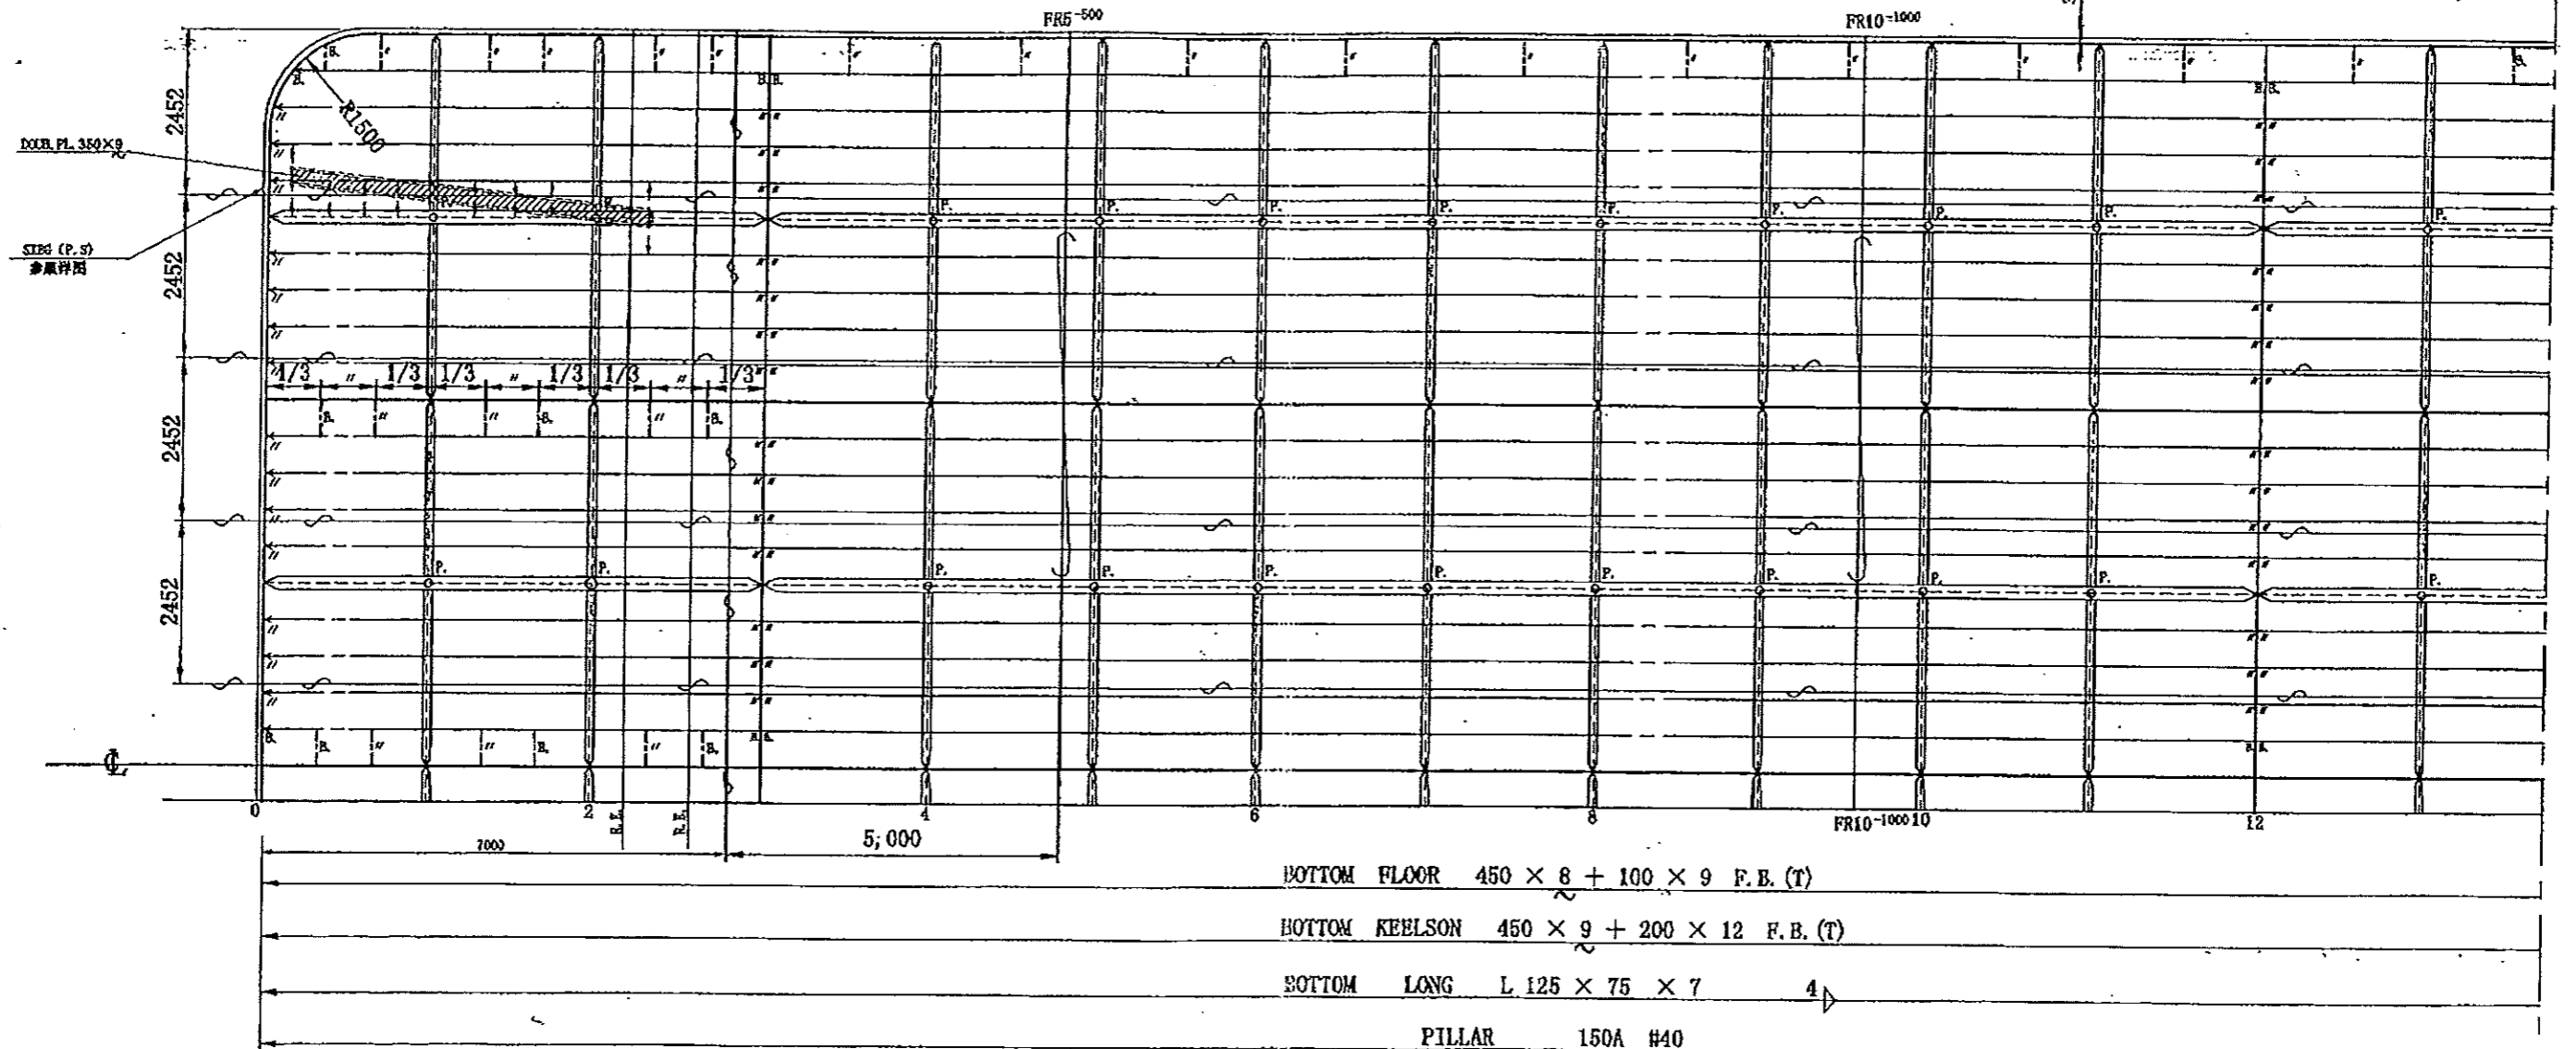 FR5-500
FR10-1000
2452
R1500
DOUB.PL.350×9
2452
参照详图
1/3 〃 1/3 1/3 〃 1/3 1/3 〃 1/3
B. 〃 〃 B. 〃 B.
2452
P. P. P. P. P. P. P. P. P. P.
2452
B. B. 〃 〃 B. 〃 B.
℄
0 2 4 6 8 FR10-1000 10 12
R.E. R.E.
7000
5,000
BOTTOM FLOOR 450 × 8 + 100 × 9 F.B.(T)
BOTTOM KEELSON 450 × 9 + 200 × 12 F.B.(T)
BOTTOM LONG L 125 × 75 × 7 4
PILLAR 150A #40